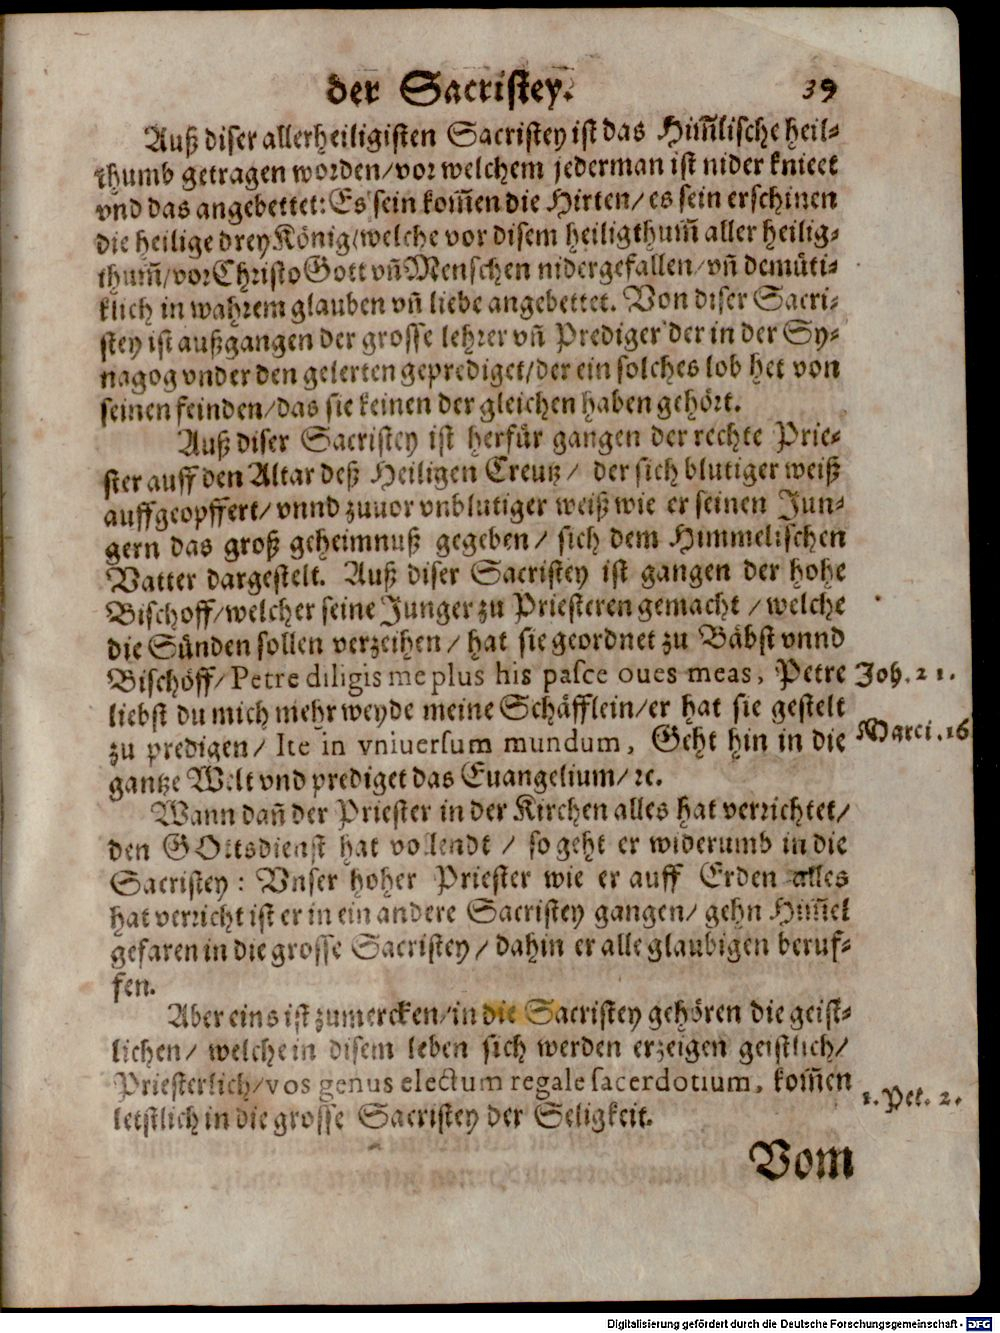 der Sacristey. 39
Auß diser allerheiligisten Sacristey ist das Him̃lische heil-
thumb getragen worden/vor welchem jederman ist nider kniect
vnd das angebettet: Es sein kom̃en die Hirten/ es sein erschinen
die heilige drey König/welche vor disem heiligthum̃ aller heilig-
thum̃/vor Christo Gott vn̄ Menschen nidergefallen/vn̄ demüti-
klich in wahrem glauben vn̄ liebe angebettet. Von diser Sacri-
stey ist außgangen der grosse lehrer vn̄ Prediger der in der Sy-
nagog vnder den gelerten geprediget/der ein solches lob het von
seinen feinden/das sie keinen der gleichen haben gehört.
Auß diser Sacristey ist herfür gangen der rechte Prie-
ster auff den Altar deß Heiligen Creutz/ der sich blutiger weiß
auffgeopffert/ vnnd zuuor vnblutiger weiß wie er seinen Jun-
gern das groß geheimnuß gegeben/ sich dem Himmelischen
Vatter dargestelt. Auß diser Sacristey ist gangen der hohe
Bischoff/welcher seine Junger zu Priesteren gemacht /welche
die Sünden sollen verzeihen/ hat sie geordnet zu Bäbst vnnd
Bischöff/Petre diligis me plus his pasce oues meas, Petre Joh. 21.
liebst du mich mehr weyde meine Schäfflein/er hat sie gestelt
zu predigen/ Ite in vniuersum mundum, Geht hin in die Marci. 16
gantze Welt vnd prediget das Euangelium/ꝛc.
Wann dañ der Priester in der Kirchen alles hat verrichtet/
den GOttsdienst hat vollendt / so geht er widerumb in die
Sacristey: Vnser hoher Priester wie er auff Erden alles
hat verricht ist er in ein andere Sacristey gangen/ gehn Him̃el
gefaren in die grosse Sacristey/ dahin er alle glaubigen beruf-
fen.
Aber eins ist zumercken/in die Sacristey gehören die geist-
lichen/ welche in disem leben sich werden erzeigen geistlich/
Priesterlich/vos genus electum regale sacerdotium, kom̃en 1. Pet. 2.
letstlich in die grosse Sacristey der Seligkeit.
Vom
Digitalisierung gefördert durch die Deutsche Forschungsgemeinschaft - DFG